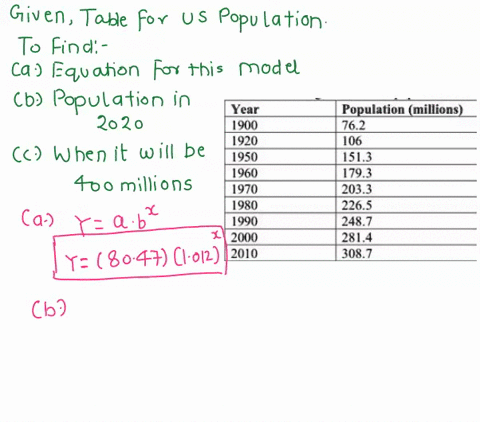 Given, Table for US Population.
To Find:-
(a.) Equation for this model
(b) Population in
2020
(c) When it will be
400 millions
Year Population (millions)
1900 76.2
1920 106
1950 151.3
1960 179.3
1970 203.3
1980 226.5
1990 248.7
2000 281.4
2010 308.7
(a.) Y = a.b^x
Y = (80.47) (1.012)^x
(b.)